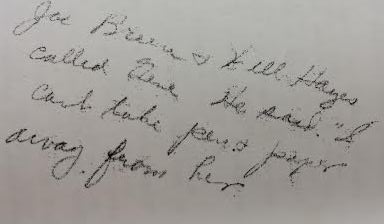 Joe Breen & Will Hays
called Gene. He said. "I
can't take pen & paper
away from her